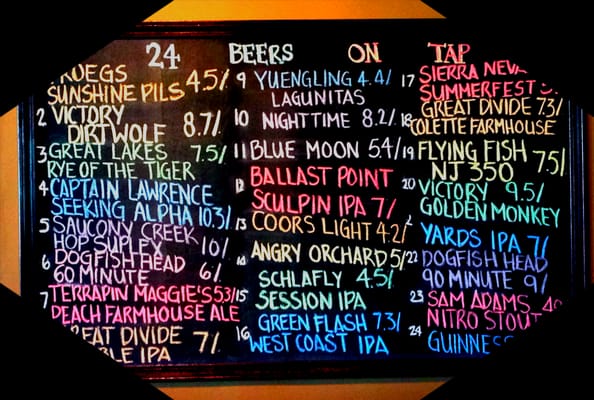 24 BEERS ON TAP
SUNSHINE PILS 4.5%
2 VICTORY
DIRTWOLF 8.7%
3 GREAT LAKES 7.5%
RYE OF THE TIGER
4 CAPTAIN LAWRENCE
SEEKING ALPHA 10.3%
5 SAUCONY CREEK
HOP SUPLEX 10%
6 DOGFISH HEAD
60 MINUTE 6%
7 TERRAPIN MAGGIE'S 5.3%
PEACH FARMHOUSE ALE
DIVIDE 7%
IPA
9 YUENGLING 4.4%
LAGUNITAS
10 NIGHTTIME 8.2%
11 BLUE MOON 5.4%
12 BALLAST POINT
SCULPIN IPA 7%
13 COORS LIGHT 4.2%
14 ANGRY ORCHARD 5%
SCHLAFLY 4.5%
15 SESSION IPA
GREEN FLASH 7.3%
16 WEST COAST IPA
17 SIERRA
SUMMERFEST
GREAT DIVIDE 7.3%
18 COLETTE FARMHOUSE
19 FLYING FISH
NJ 350 7.5%
20 VICTORY 9.5%
GOLDEN MONKEY
YARDS IPA 7%
22 DOGFISH HEAD
90 MINUTE 9%
23 SAM ADAMS
NITRO STOUT
24 GUINNESS